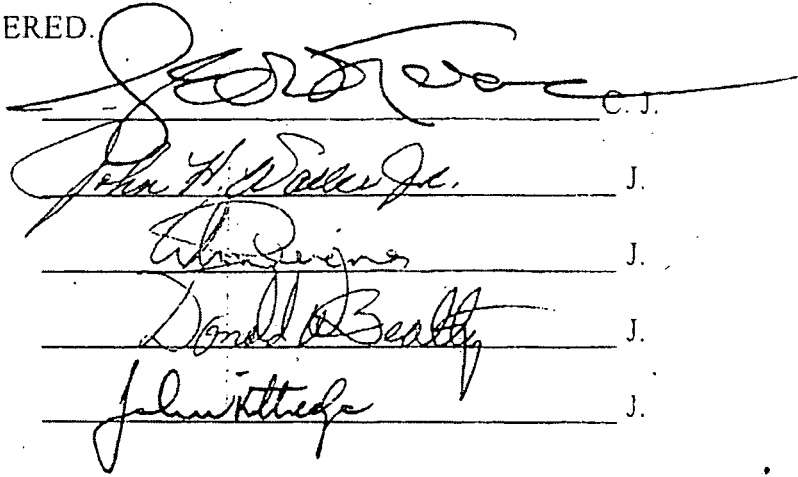 ERED.
C. J.
John H. Waller Jr. J.
J.
Donald W Beatty J.
John Kittredge J.